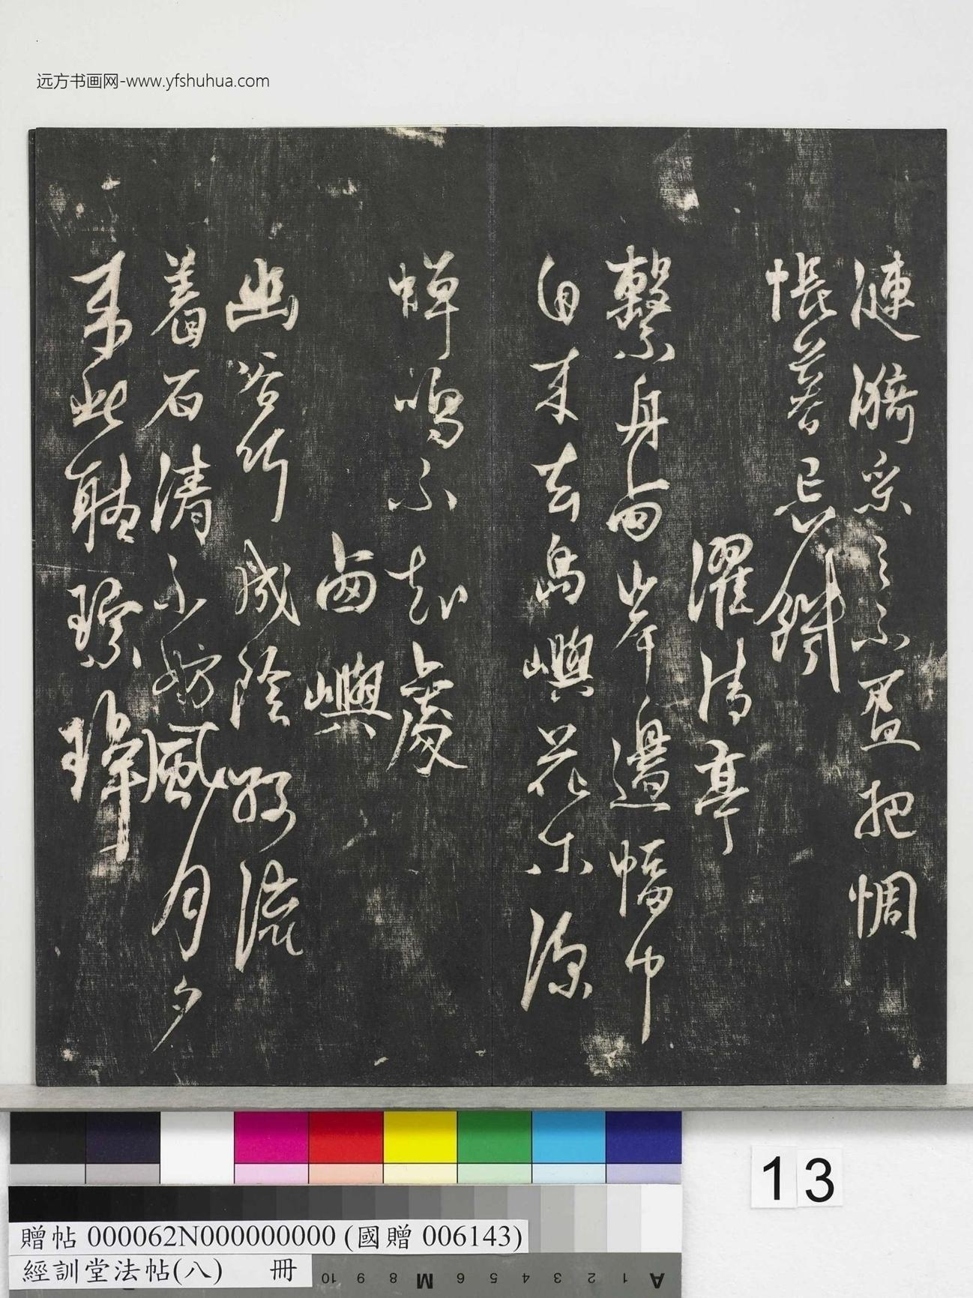 远方书画网-www.yfshuhua.com
漣漪采之不盈把惆
悵暮忘餐
濯清亭
繫舟西岸邊幅巾
自來去島嶼花木深
蟬鳴不知處
西嶼
幽谷竹成陰流
著石清不妨風月夕
來此聽瓊琤
13
贈帖 000062N000000000 (國贈 006143)
經訓堂法帖(八) 冊
10 9 8 M 6 5 4 3 2 1 A